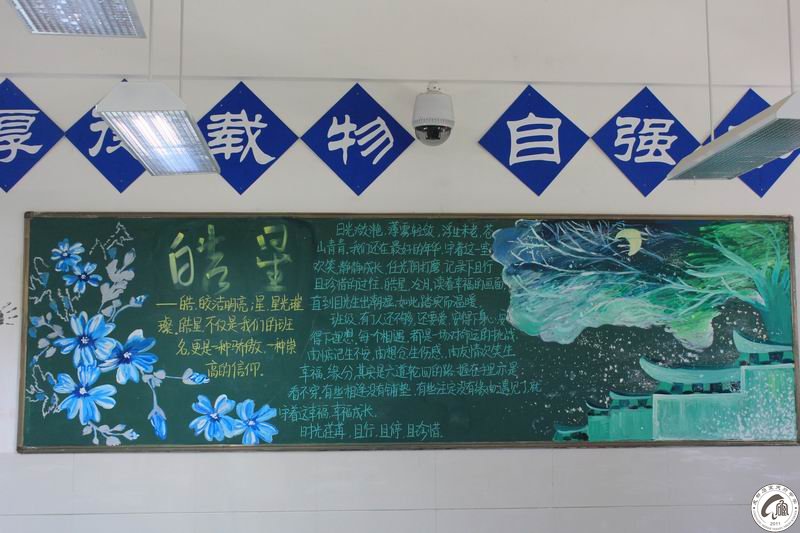 厚
载
物
自
强
皓星
日光潋滟，薄雾轻纹，浮世未老，苍
山青青，我们还在最好的年华，守着一室
欢笑，静静成长，任光阴打磨，记录下且行
且珍惜的过往。皓星，冷月，读着幸福的画面
直到日光生出潮湿，如此踏实而温暖。
——皓，皎洁明亮；星，星光璀
璨，皓星不仅是我们的班
名，更是一种骄傲，一种崇
高的信仰。
班级，有了人还不够，还要爱，安得下身心，安
得下理想，每个相遇，都是一场对命运的挑战
由惦记生不安，由想念生伤感，由友情欢笑生
幸福，缘分，其实是六道轮回的路，握在手里亦是
看不穿，有些相逢没有铺垫，有些注定没有缘由，遇见了就
守着这幸福，幸福成长。
时光荏苒，且行，且停，且珍惜。
2011